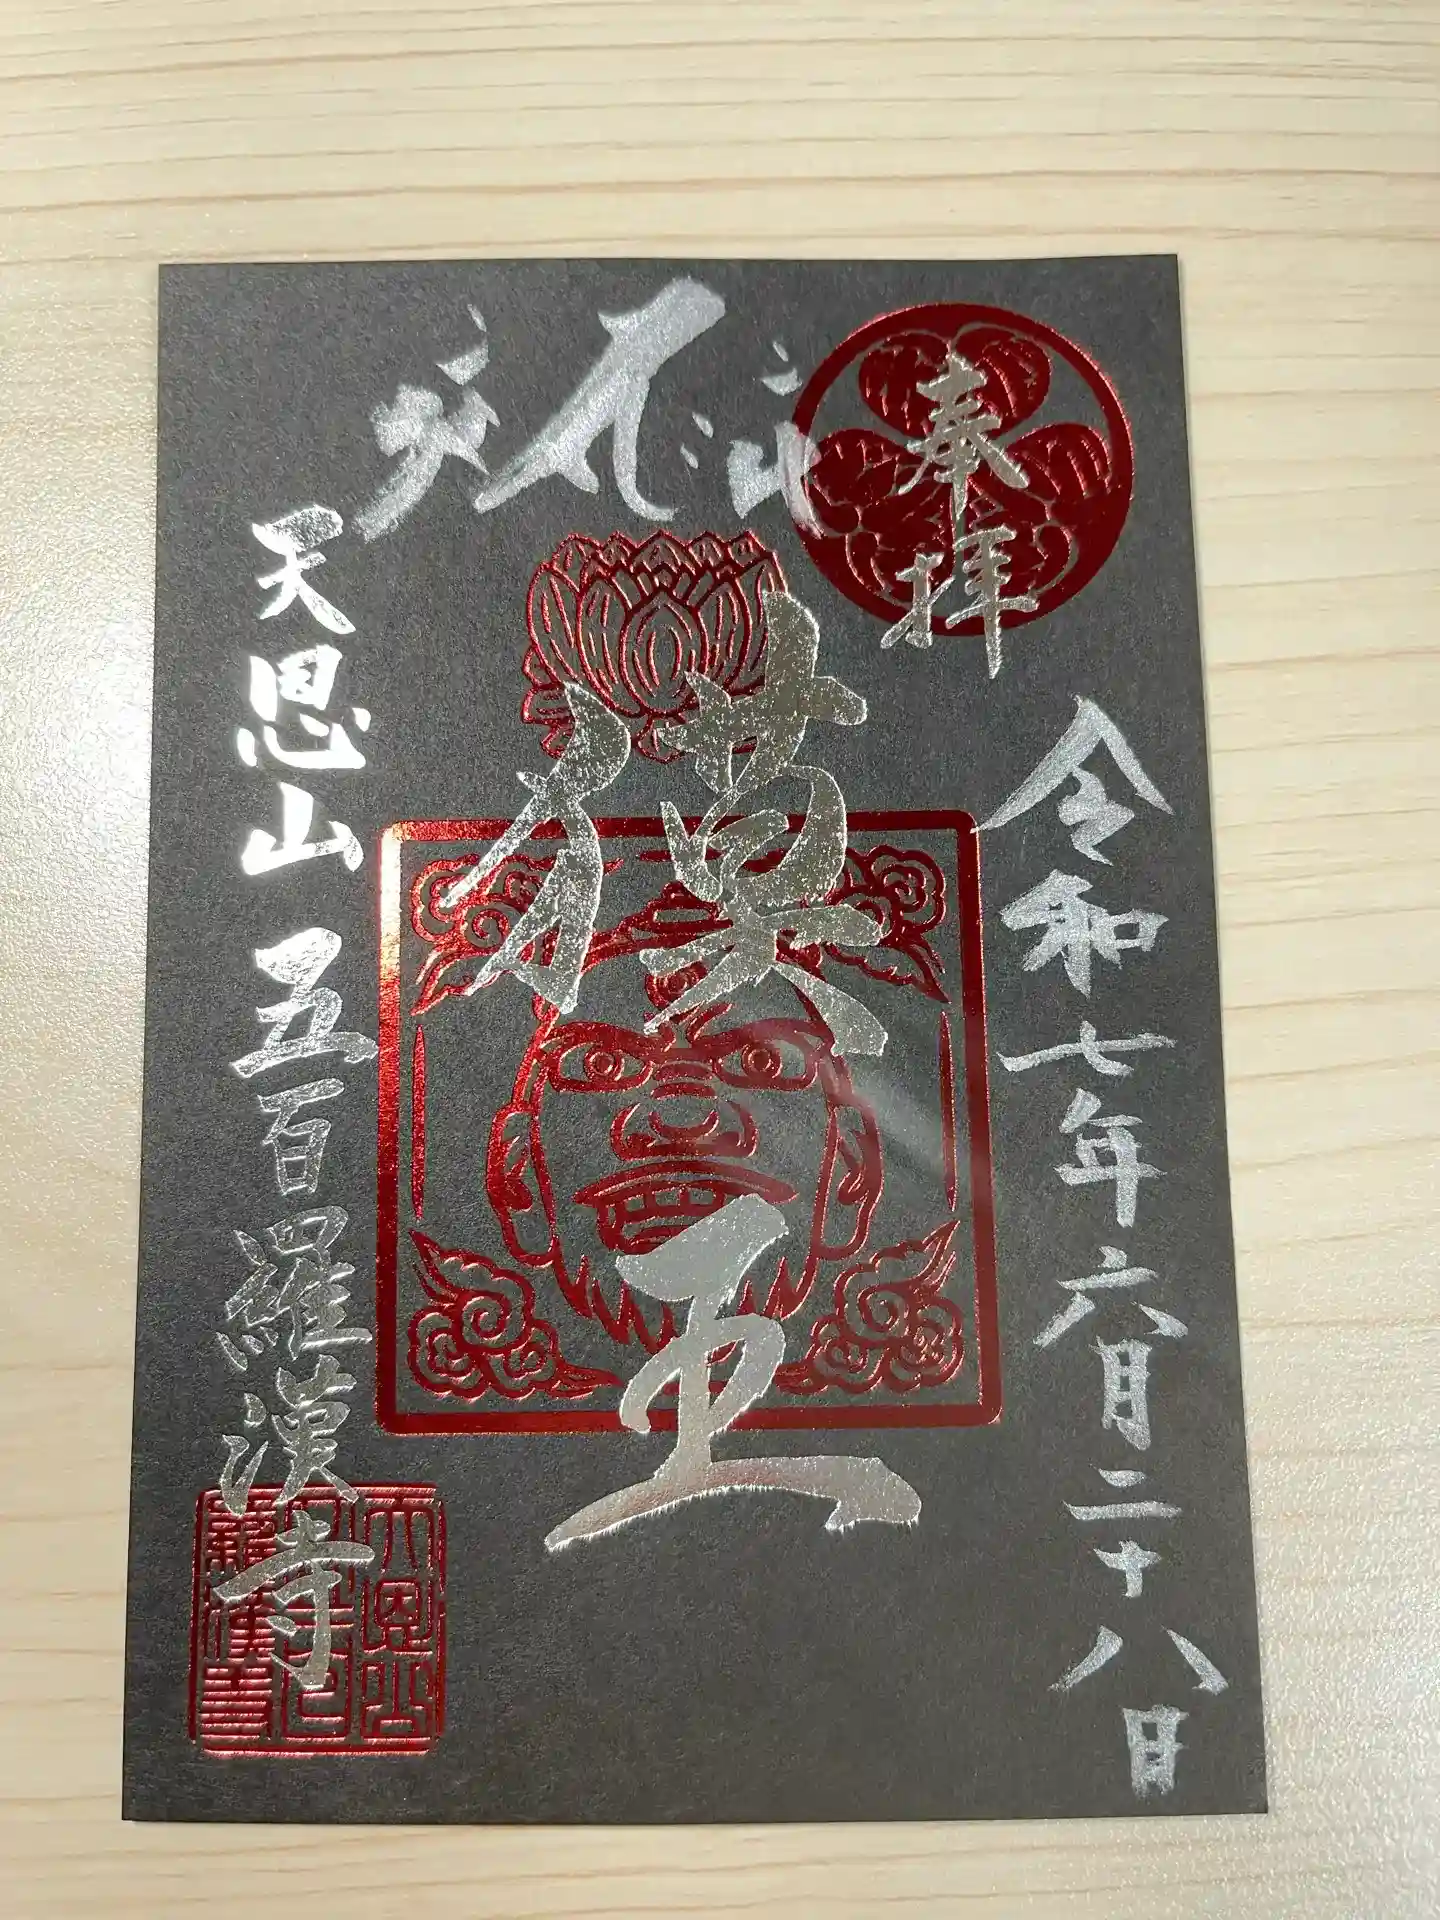 奉拝
令和七年六月二十八日
獏王
天恩山 五百羅漢寺
天恩山
五百
羅漢寺